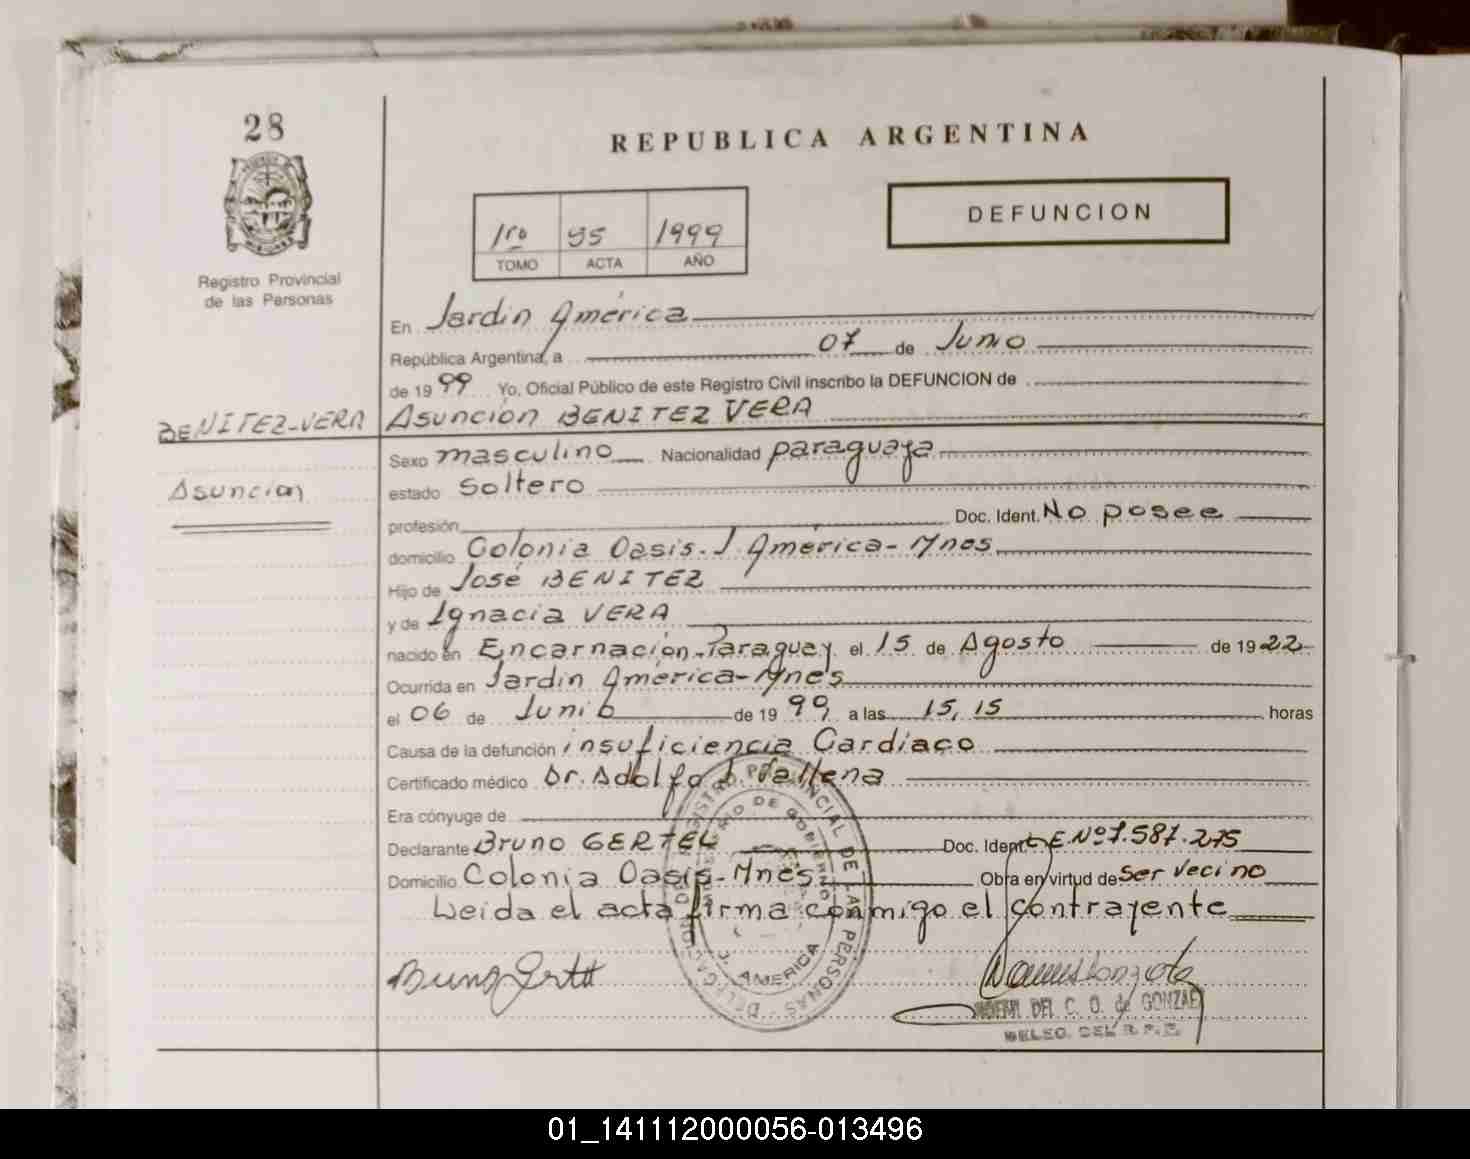 28
REPUBLICA ARGENTINA
DEFUNCION
1ro 95 1999
TOMO ACTA AÑO
Registro Provincial
de las Personas
En Jardín América
República Argentina, a 07 de Junio
de 1999 Yo, Oficial Público de este Registro Civil inscribo la DEFUNCION de
BENITEZ-VERA Asunción BENITEZ VERA
Sexo masculino Nacionalidad paraguaya
Asuncion
estado Soltero
profesión Doc. Ident. No posee
domicilio Colonia Oasis. J. América-Mnes
Hijo de José BENITEZ
y de Ignacia VERA
nacido en Encarnación-Paraguay el 15 de Agosto de 1922
Ocurrida en Jardín América-Mnes
el 06 de Junio de 1999, a las 15,15 horas
Causa de la defunción insuficiencia Cardíaco
Certificado médico Dr. Adolfo
Era cónyuge de
Declarante Bruno GERTEL Doc. Ident. Nº 7.587.275
Domicilio Colonia Oasis-Mnes Obra en virtud de Ser Vecino
Leida el acta firma conmigo el contrayente
REGISTRO PROVINCIAL DE LAS PERSONAS - DELEGACION
MINISTERIO DE GOBIERNO
J. AMERICA
DEL C. O. de GONZALEZ
DELEG. DEL R.P.P.
01_141112000056-013496